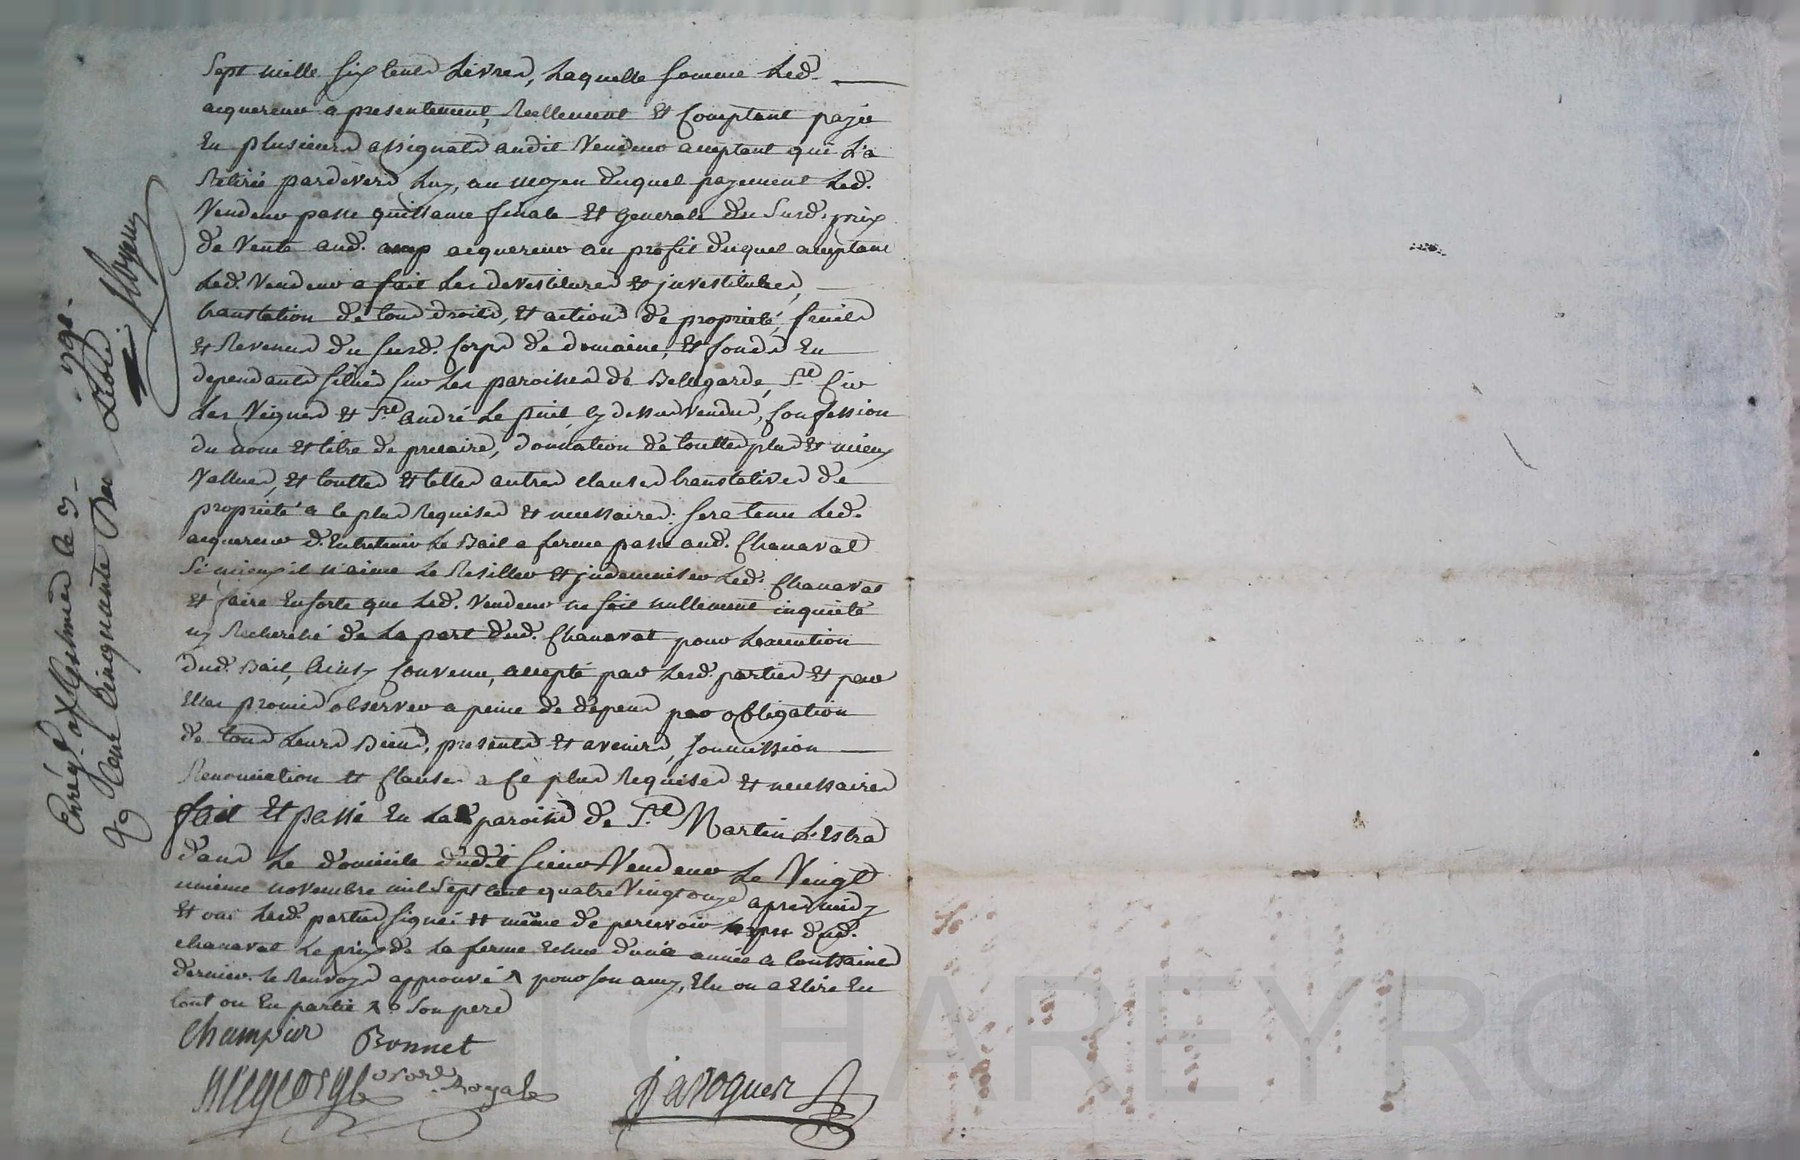 Sept mille six cents Livres, Laquelle somme Led.
acquereur a presentement, Reellement et Comptant payée
En plusieurs assignats audit Vendeur acceptant qui L'a
Retiré pardevers Luy, au moyen duquel payement Led.
Vendeur passe quittance finale et generale du Susd. prix
de Vente aud. acquereur au profit duquel acceptant
Led. Vendeur a fait Les devestitures et jnvestitures,
translation de tous droits, et actions de proprieté, fruits
et Revenus du susd. Corps de domaine, et fonds En
dependants situés sur Les paroisses de Bellegarde, St Cir
Les Vignes et St André Le puit, cy dessus vendus, Confession
du nom et titre de precaire, donnation de touttes plus et mieux
Vallues, et touttes et telles autres clauses translatives de
proprieté a ce plus Requises et necessaires; sera tenu Led.
acquereur d'Entretenir Le Bail a ferme passé aud. Chanavat
Si mieux il n'aime Le Resillier et jndemniser Led. Chanavat
et faire Ensorte que Led. Vendeur ne soit nullement inquiété
ny Recherché de La part dud. Chanavat pour Lexecution
dud. Bail, Ainsy Convenu, accepté par Lesd. parties et par
Elles promis observer a peine de depens par obligation
de tous Leurs Biens, presents et avenirs, soumission
Renonciation et Clauses a Ce plus Requises et necessaires
fait et passé En La paroisse de St Martin L'Estra
dans Le domicile dudit sieur Vendeur Le Vingt
unieme novembre mil Sept cent quatre Vingt onze apres midy
et ont Lesd. parties signé et même de percevoir dud.
chanavat Le prix de La ferme echue d'une année a Toussaint
dernier. le Renvoy approuvé pour son amy, Elu ou a Elire En
tout ou En partie son pere
Champier Bonnet
Royal
Javoguer
Enrég. a le 3 1791.
Cent Cinquante